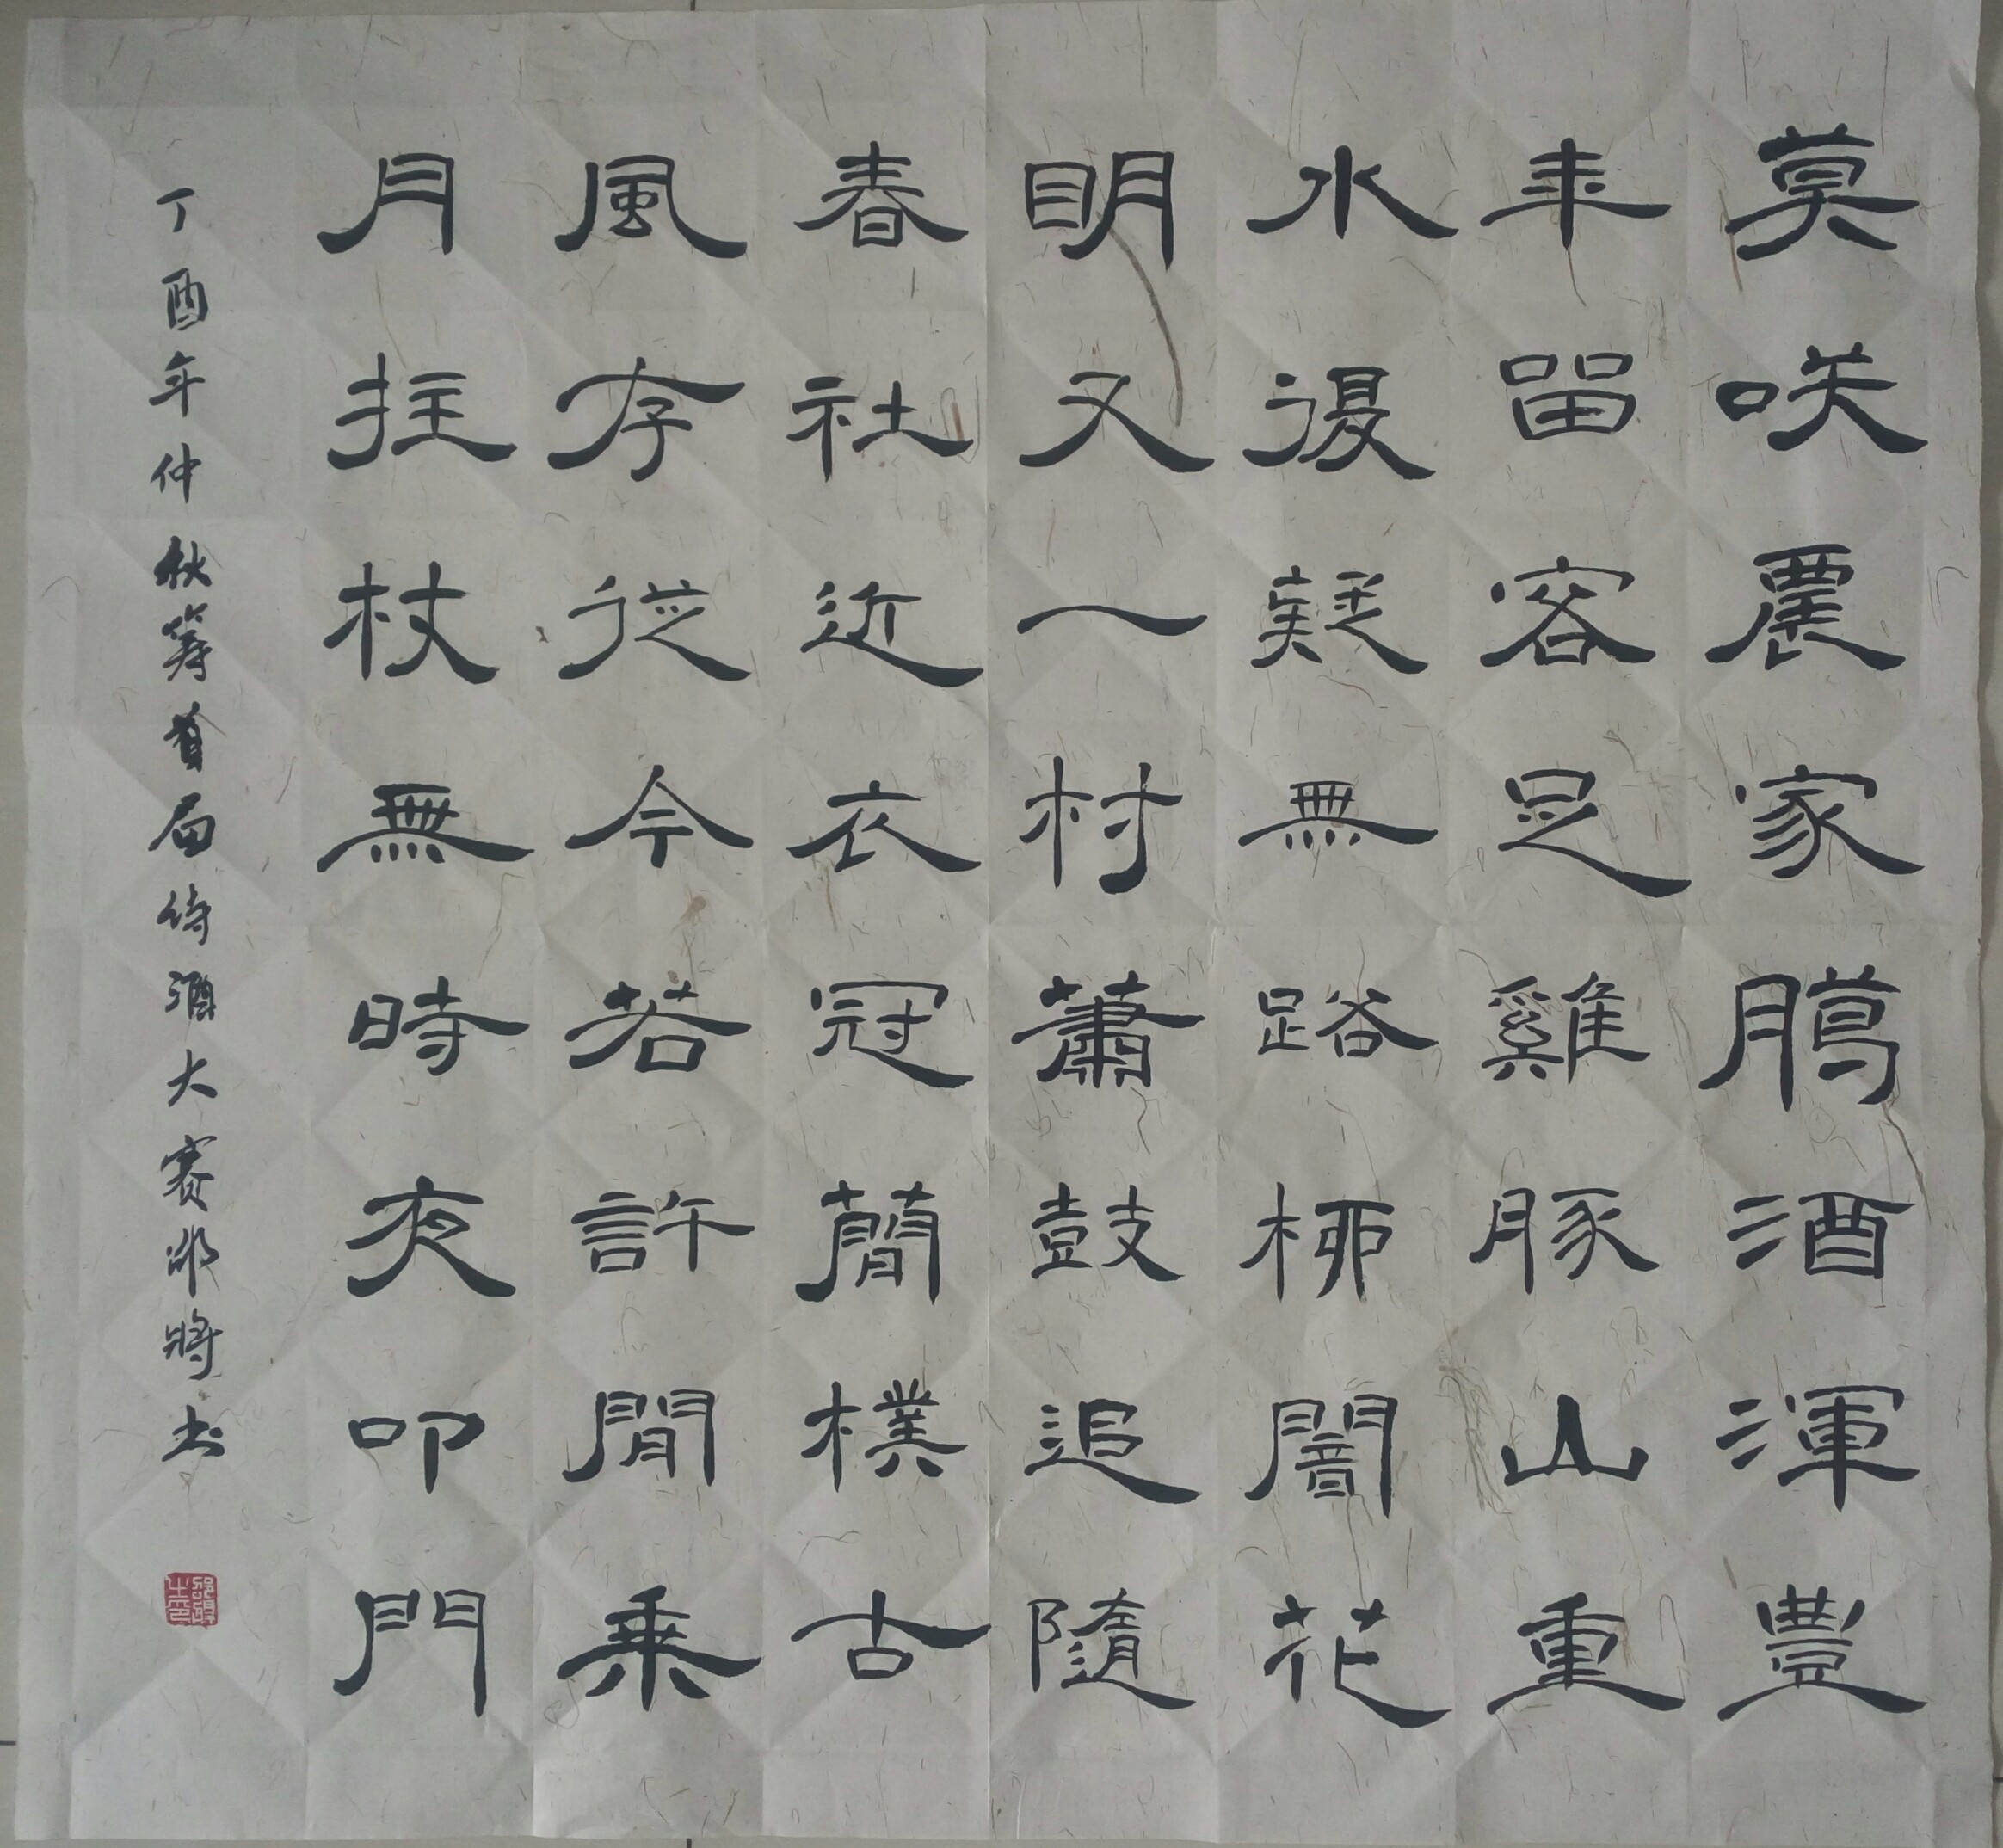 莫咲農家臈酒渾豊
年留客足雞豚山重
水復疑無路柳闇花
明又一村蕭鼓追隨
春社近衣冠簡樸古
風存從今若許閒乘
月拄杖無時夜叩門
丁酉年仲秋筹首届诗酒大赛邵將书